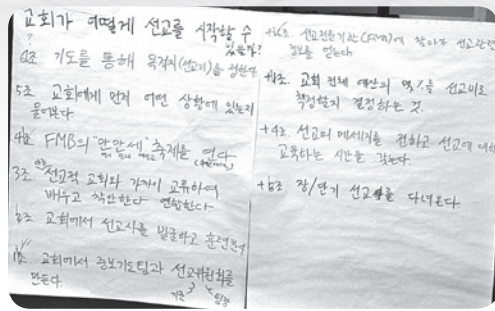 교회가 어떻게 선교를 시작할 수
있을까?
6조 기도를 통해 목적지(선교지)을 정한다
5조 교회에게 먼저 어떤 상황에 있는지
물어본다
4조 FMB의 "만만세" 축제를 연다
3조 선교적 교회와 가까이 교류하여
배우고 협력한다 연합한다
2조 교회에서 선교사를 발굴하고 훈련한다
1조 교회에서 중보기도팀과 선교위원회를
만든다.
기존 팀장
선교전문기관(FMB)에 찾아가 선교관련
정보를 얻는다
교회 전체 예산의 몇%를 선교비로
책정할지 결정하는 것.
+4조 선교의 메세지를 전하고 선교에 대해
교육하는 시간을 갖는다.
장/단기 선교를 다녀온다